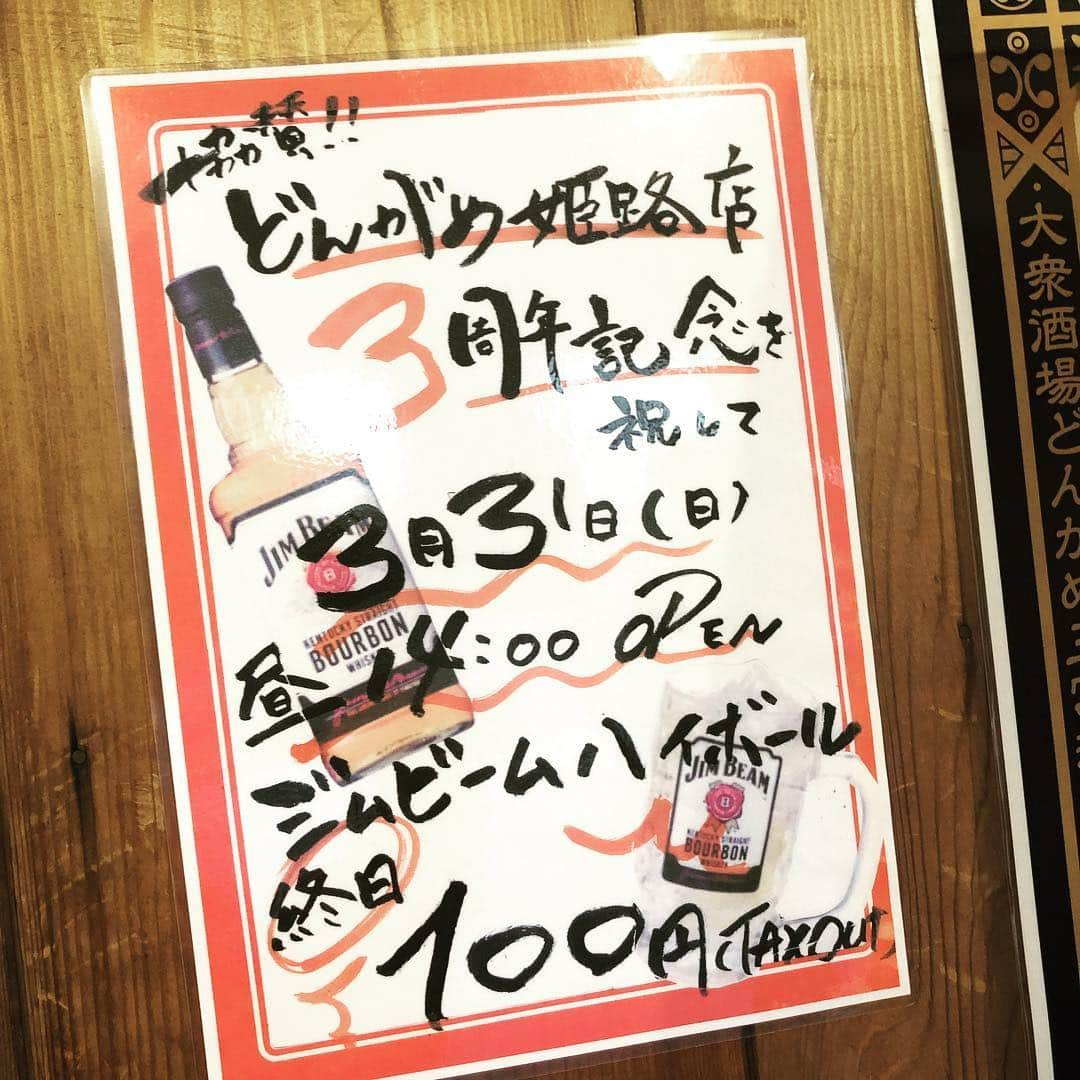 協賛!!
どんがめ姫路店
3周年記念を
祝して
3月31日(日)
昼14:00 OPEN
ジムビームハイボール
終日
100円(TAXOUT)
JIM BEAM
KENTUCKY STRAIGHT
BOURBON
WHISKEY
JIM BEAM
KENTUCKY STRAIGHT
BOURBON
WHISKEY
・大衆酒場どんがめ